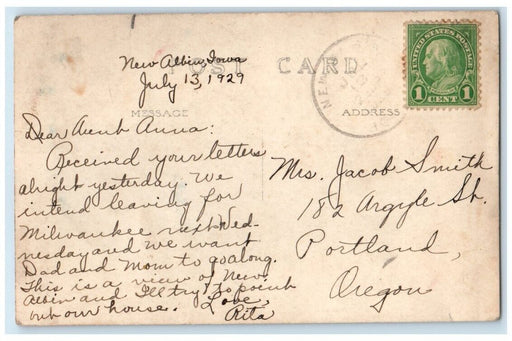 New Albin, Iowa
July 13, 1929
POST CARD
MESSAGE
ADDRESS
UNITED STATES POSTAGE
1 CENT 1
NEW
Dear Aunt Anna:
Received your letters
alright yesterday. We
intend leaving for
Milwaukee next Wed-
nesday and we want
Dad and Mom to go along.
This is a view of New
Albin and I'll try to point
out our house. Love,
Rita
Mrs. Jacob Smith
182 Argyle St.
Portland,
Oregon